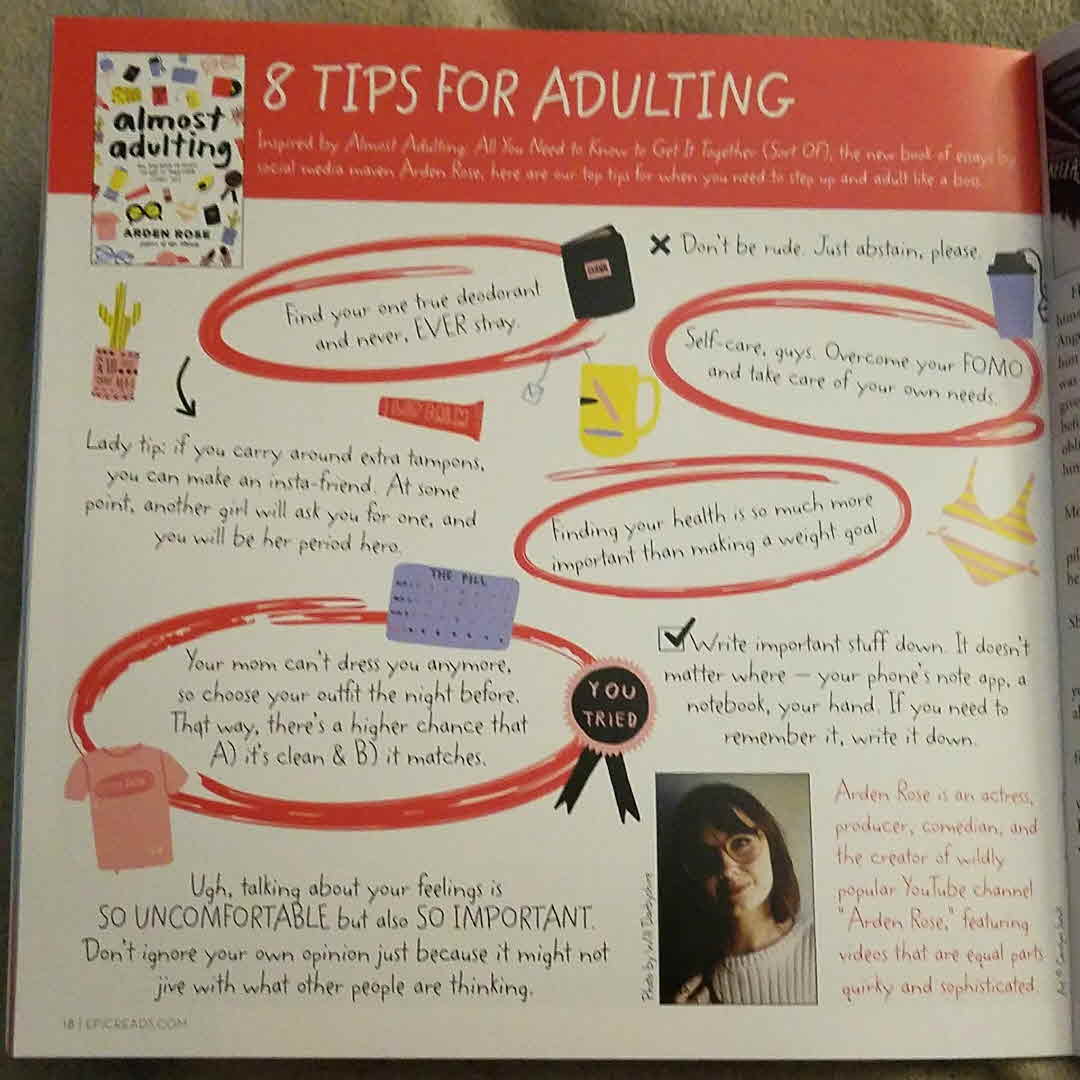 almost
adulting
ARDEN ROSE
8 TIPS FOR ADULTING
Inspired by Almost Adulting: All You Need to Know to Get It Together (Sort Of), the new book of essays by
social media maven Arden Rose, here are our top tips for when you need to step up and adult like a boss.
Find your one true deodorant
and never, EVER stray.
Don't be rude. Just abstain, please.
Self-care, guys. Overcome your FOMO
and take care of your own needs.
Lady tip: if you carry around extra tampons,
you can make an insta-friend. At some
point, another girl will ask you for one, and
you will be her period hero.
Finding your health is so much more
important than making a weight goal
THE PILL
Your mom can't dress you anymore,
so choose your outfit the night before.
That way, there's a higher chance that
A) it's clean & B) it matches.
YOU
TRIED
Write important stuff down. It doesn't
matter where — your phone's note app, a
notebook, your hand. If you need to
remember it, write it down.
Ugh, talking about your feelings is
SO UNCOMFORTABLE but also SO IMPORTANT.
Don't ignore your own opinion just because it might not
jive with what other people are thinking.
Photo by Will Darbyshire
Arden Rose is an actress,
producer, comedian, and
the creator of wildly
popular YouTube channel
"Arden Rose," featuring
videos that are equal parts
quirky and sophisticated.
18 | EPICREADS.COM